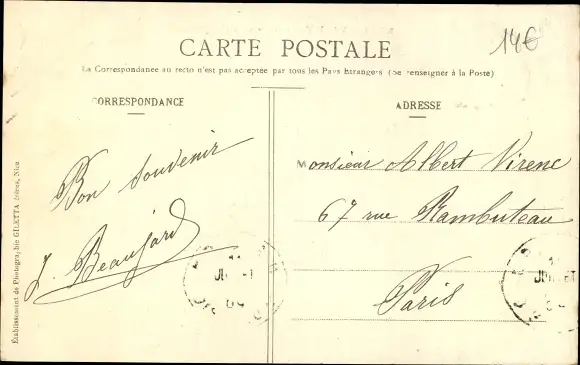 14€
CARTE POSTALE
La Correspondance au recto n'est pas acceptée par tous les Pays Étrangers (Se renseigner à la Poste)
CORRESPONDANCE
Bon souvenir
J. Beaujard
ADRESSE
Monsieur Albert Virenc
67 rue Rambuteau
Paris
Établissement de Photographie GILETTA frères, Nice